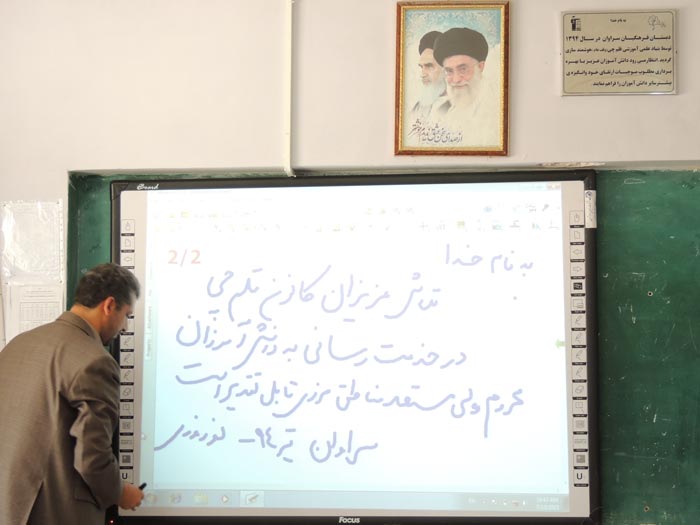 به نام خدا
دبستان فرهنگیان سراوان در سال ۱۳۹۴
توسط بنیاد علمی آموزشی قلم چی یک ماه هوشمند سازی
گردید. انتظار می رود دانش آموزان عزیز با بهره
برداری مطلوب موجبات ارتقای خود و انگیزه ی
بیشتر سایر دانش آموزان را فراهم نمایند.
eBoard
2/2
به نام خدا
تلاش عزیزان کانون قلم چی
در خدمت رسانی به دانش آموزان
محروم ولی مستعد مناطق مرزی قابل تقدیر است
سراوان تیر ۹۴ - نوروزی
Focus